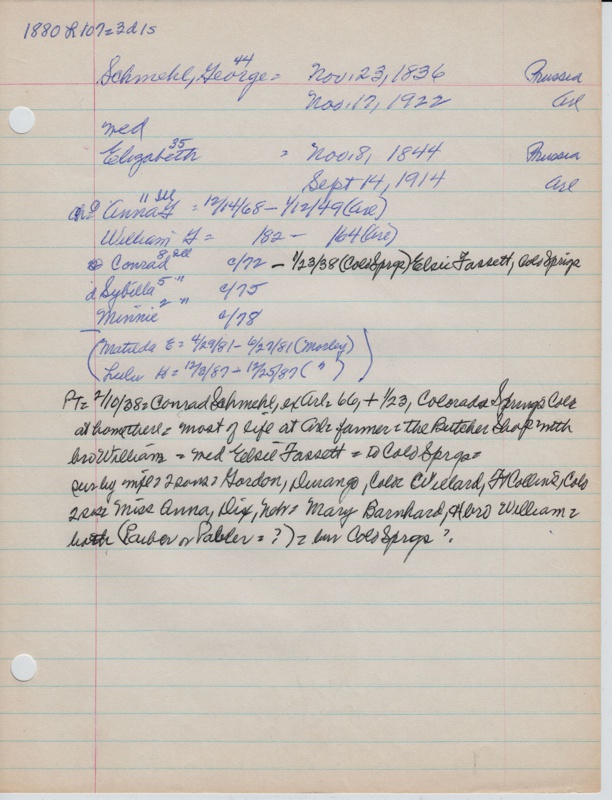 1880 R 107 = 3d 1s
Schmehl, George 44 = Nov. 23, 1836 Prussia
Nov. 17, 1922 Arl
med
Elizabeth 35 = Nov. 8, 1844 Prussia
Sept 14, 1914 Arl
Anna 11 Ill = 12/14/68 - 1/12/49 (Arl)
William = 182 - 164 (Arl)
Conrad 8 Ill c/72 - 1/23/38 (Colo Sprgs) Elsie Fassett, Colo Sprgs
d Sybilla 5 " c/75
Minnie 2 " c/78
(Matilda E = 4/29/81 - 6/27/81 (Morley)
Lulu H = 12/3/87 + 12/25/87 ( " ) )
Pt = 2/10/38 = Conrad Schmehl, ex Arl = 66, + 1/23, Colorado Springs Colo
at home there = most of life at Arl = farmer = the Butcher Shop with
bro William = med Elsie Fassett = to Colo Sprgs =
sur by wife = 2 sons = Gordon, Durango, Colo Willard, Ft Collins, Colo
2 sis Miss Anna, Dix, Nebr = Mary Barnhard, bro William =
both ( or = ?) = bur Colo Sprgs ?.